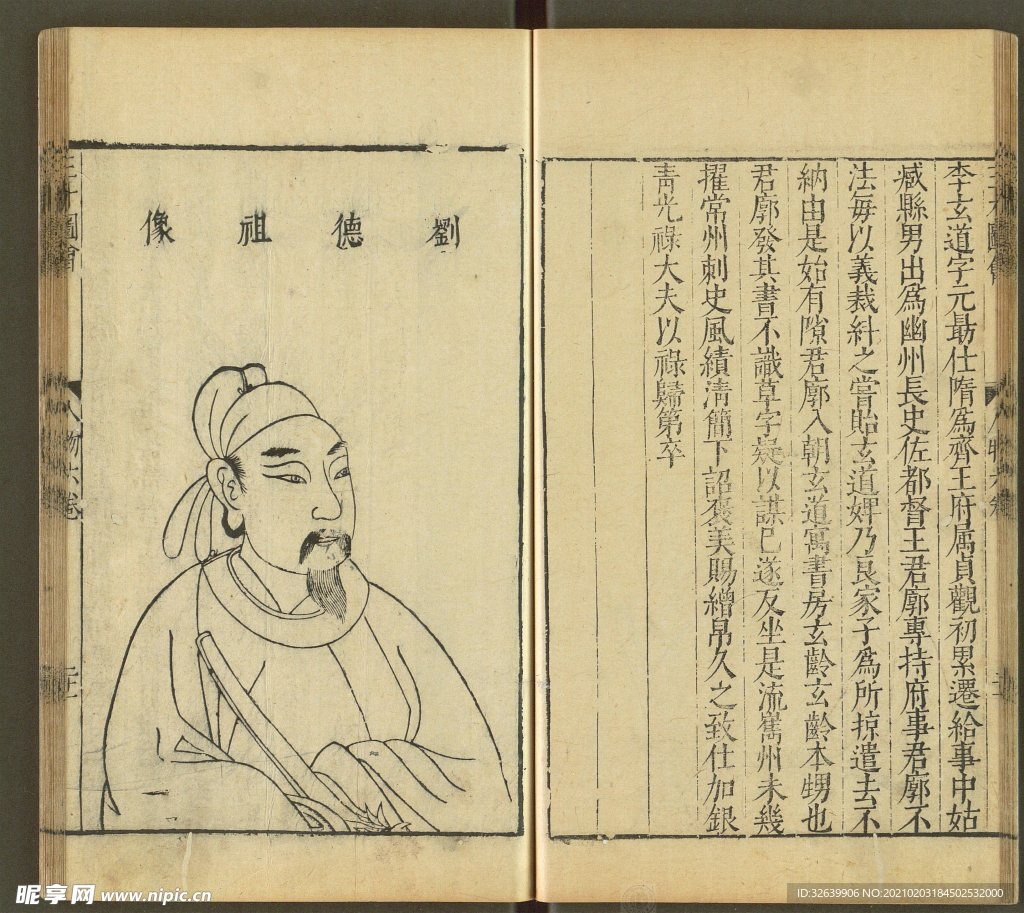 李玄道字元勗仕隋為齊王府属貞觀初累遷給事中姑
臧縣男出為幽州長史佐都督王君廓專持府事君廓不
法每以義裁糾之嘗貽玄道婢乃良家子為所掠遣去不
納由是始有隙君廓入朝玄道寓書房玄齡玄齡本甥也
君廓發其書不識草字疑以謀己遂反坐是流嶲州未幾
擢常州刺史風績清簡下詔褒美賜繒帛久之致仕加銀
青光祿大夫以祿歸第卒
劉德祖像
三才圖會
人物六卷
昵享网 www.nipic.cn
ID:32639906 NO:20210203184502532000